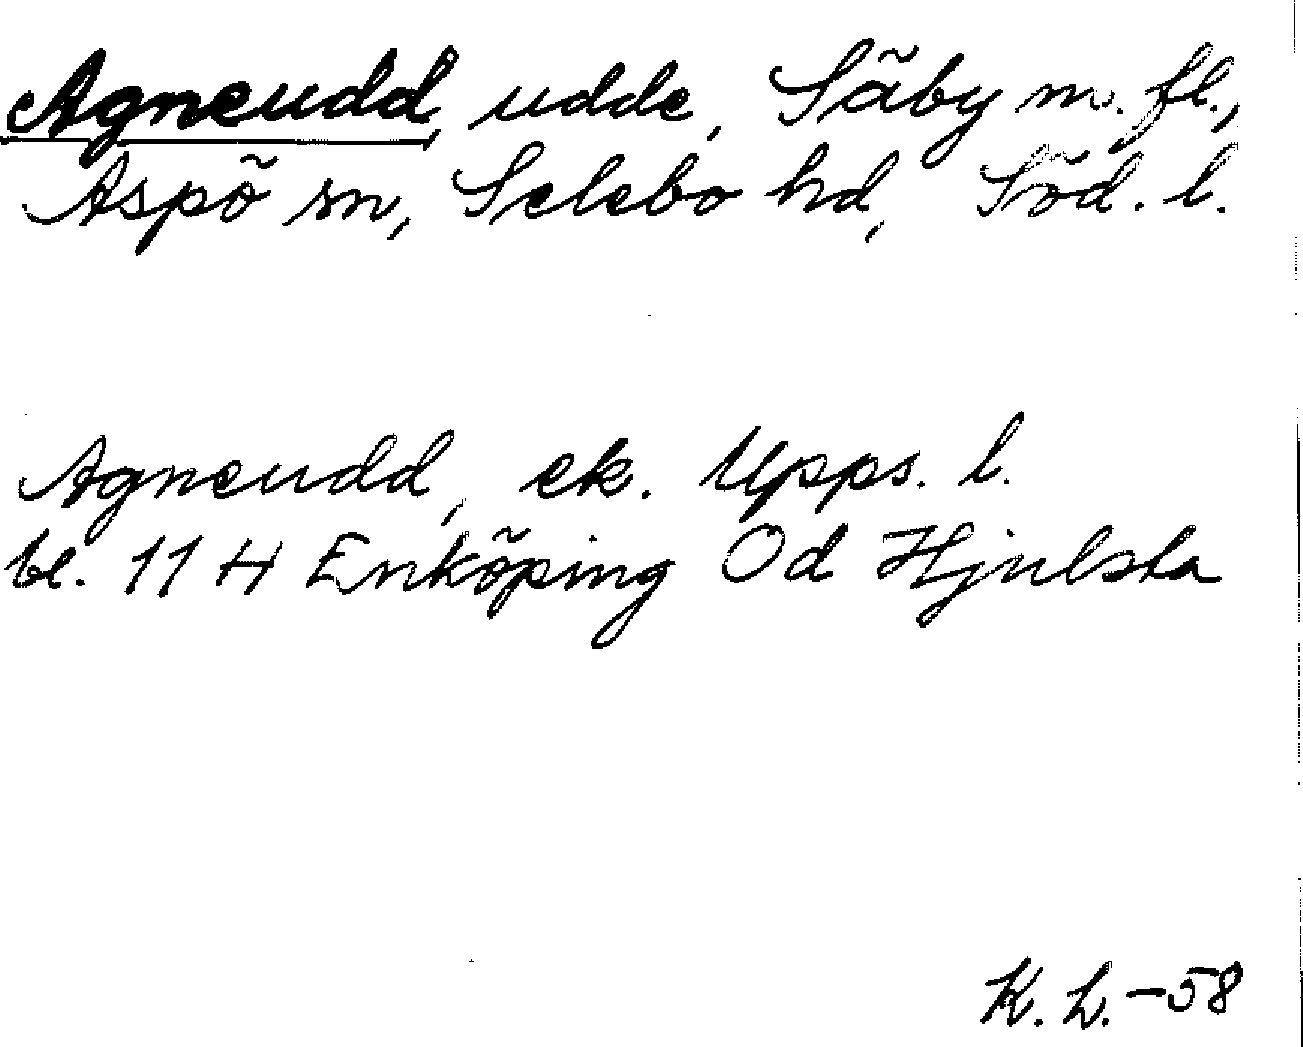 Agneudd, udde, Säby m. fl.,
Aspö sn, Selebo hd, Söd. l.
Agneudd, ek. Upps. l.
bl. 11 H Enköping Od Hjulsta
K. L. -58